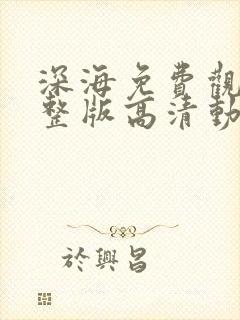 深海免費觀
整版高清動
於興昌